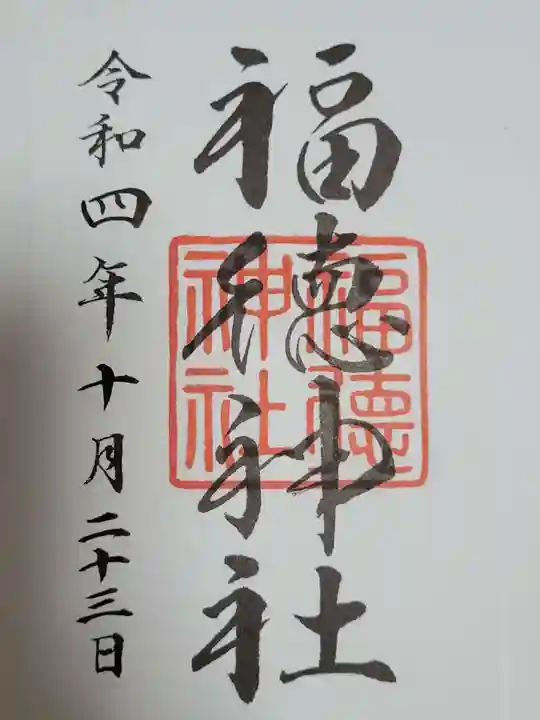 福徳神社
福徳
神社
令和四年十月二十三日